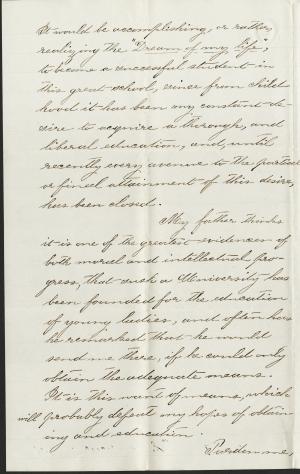 It would be accomplishing, or rather,
realizing the "Dream of my life",
to become a successful student in
this great school, since from child
hood it has been my constant de-
sire to acquire a thorough, and
liberal education, and, until
recently every avenue to the partial
or final attainment of this desire,
has been closed.
My father thinks
it is one of the greatest evidences of
both moral and intellectual pro-
gress, that such a University has
been founded for the education
of young ladies, and often has
he remarked that he would
send me there, if he could only
obtain the adequate means.
It is this want of means, which
will probably defeat my hopes of obtain
ing and education.
Pardon me,